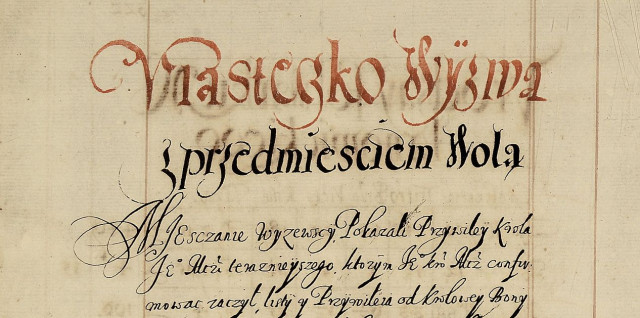 Miasteczko Wÿzwa
z przedmiesciem Wola
Miesczanie Wyzewscy Pokazali Przywiley Krola
Je° Mći teraznieyszego, ktorym Je° kro Mć confir,
mowac raczył, listy y Przywileia od krolowey Bony